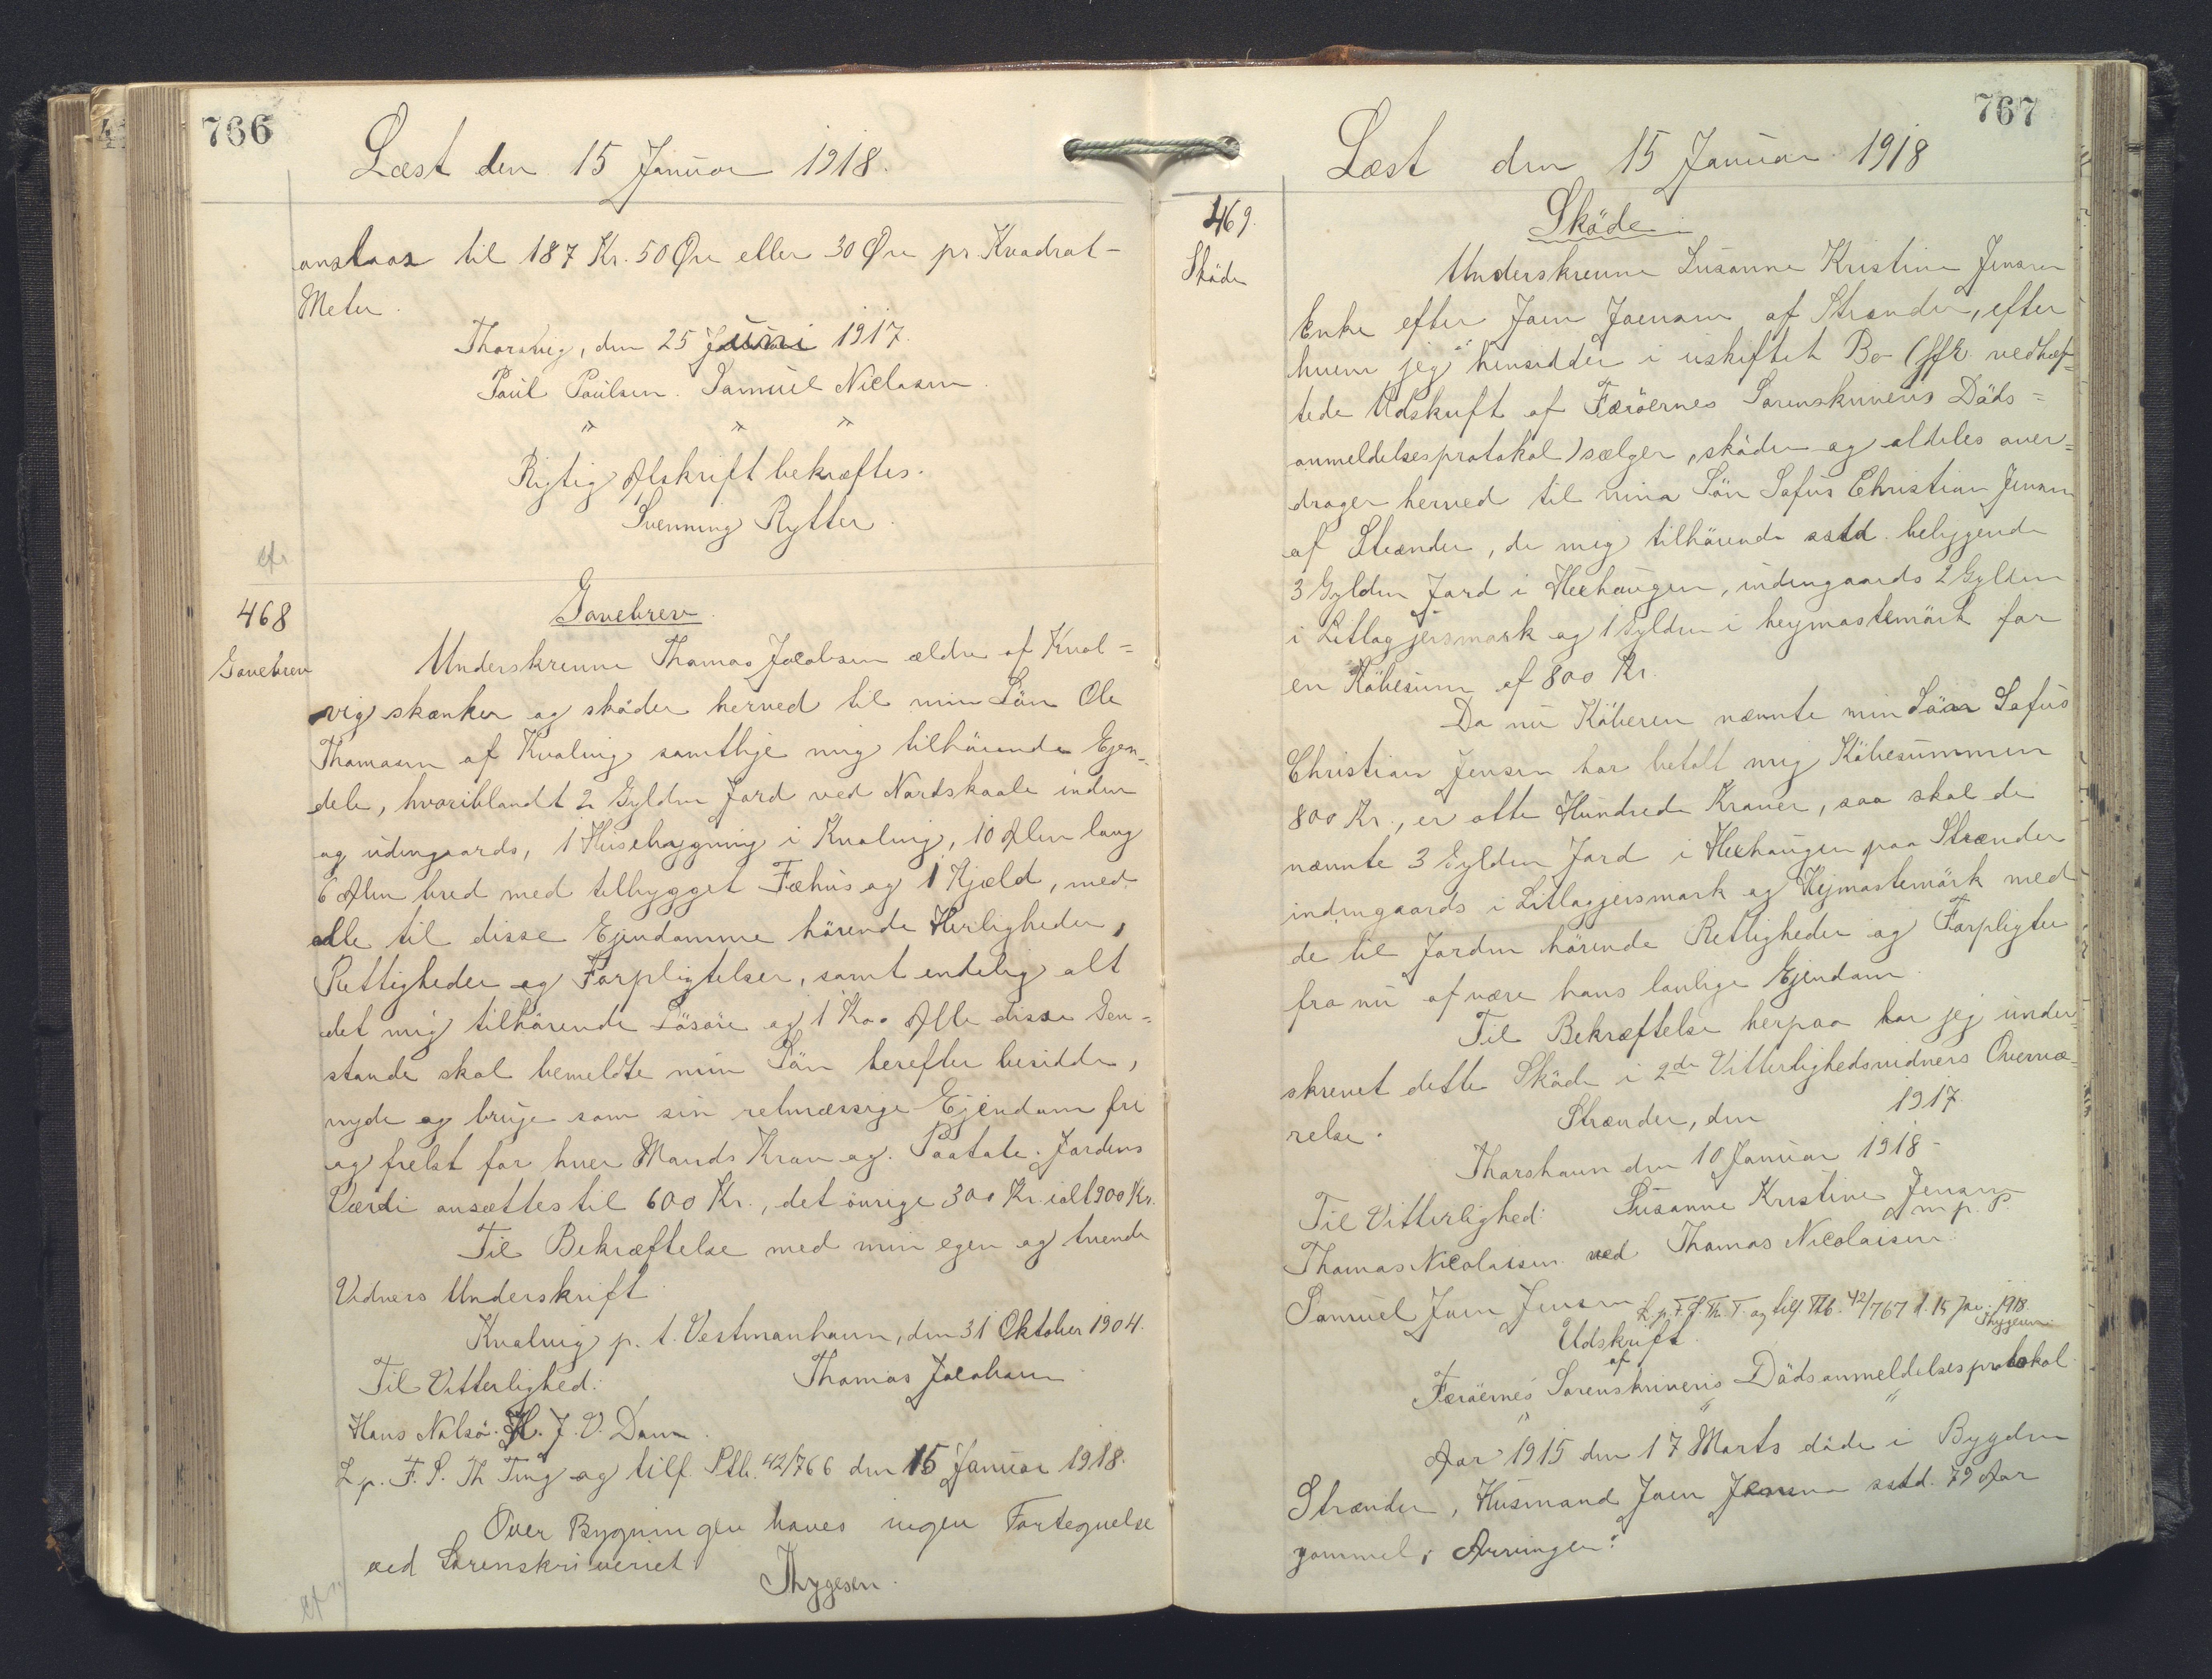 766
Læst den 15 Januar 1918.
anslaas til 187 Kr. 50 Øre eller 30 Øre pr. Kvadrat-
Meter.
Thorsvig, den 25 Juni 1917.
Paul Paulsen. Samuel Niclasen.
" " "
Rigtig Afskrift bekræftes.
Svenning Rytter.
cfr
468
Gavebrev
Gavebrev.
Underskrevne Thomas Jacobsen ældre af Kval=
vig skænker og skøder herved til min Sön Ole
Thomasen af Kvalvig samtlige mig tilhörende Ejen-
dele, hvoriblandt 2 Gylden Jord ved Nordskaale inden
og udengaards, 1 Husebygning i Kvalvig, 10 Alen lang
6 Alen bred med tilbygget Fæhus og 1 Hjæld, med
alle til disse Ejendomme hörende Herligheder,
Rettigheder og Forpligtelser, samt endelig alt
det mig tilhörende Lösöre og 1 Ko. Alle disse Gen=
stande skal bemeldte min Sön herefter besidde,
nyde og bruge som sin retmæssige Ejendom fri
og frelst for hver Mands Krav og Paatale. Jordens
Værdi ansættes til 600 Kr., det övrige 300 Kr. ialt 900 Kr.
Til Bekræftelse med min egen og tvende
Vidners Underskrift.
Kvalvig p. t. Vestmanhavn, den 31 Oktober 1904.
Til Vitterlighed: Thomas Jacobsen
Hans Nalsö. H. J. V. Dam.
L p. F. S. Th Ting og tilf. Ptb. 42/766 den 15 Januar 1918.
Over Bygningen haves ingen Fortegnelse
ved Sorenskriveriet
Thygesen.
cfr
767
Læst den 15 Januar 1918
469.
Sköde
Sköde
Underskrevne Susanne Kristine Jensen
Enke efter Joen Joensen af Strænder, efter
hvem jeg hensidder i uskiftet Bo (jfr. vedhæf=
tede Udskrift af Færöernes Sorenskriveris Döds=
anmeldelsesprotokol) sælger, sköder og aldeles over=
drager herved til mina Sön Sofus Christian Jensen
af Strænder, de mig tilhörende sstd. beliggende
3 Gylden Jord i Heehaugen, indengaards 2 Gylden
i Litlagjersmark og 1 Gylden i heymastemörk for
en Köbesum af 800 Kr.
Da nu Köberen nævnte min Sön Sofus
Christian Jensen har betalt mig Köbesummen
800 Kr., er otte Hundrede Kroner, saa skal de
nævnte 3 Gylden Jord i Heehaugen paa Strænder
indengaards i Litlagjersmark og Hejmastemörk med
de til Jorden hörende Rettigheder og Forpligter
fra nu af være hans lovlige Ejendom.
Til Bekræftelse herpaa har jeg under=
skrevet dette Sköde i 2de Vitterlighedsvidners Overvæ=
relse.
Strænder, den 1917.
Thorshavn den 10 Januar 1918-
Til Vitterlighed: Susanne Kristine Jensen
m. p. P.
Thomas Nicolaisen ved Thomas Nicolaisen
Samuel Joen Jensen L. p. F. S. Th. T. og tilf. Ptb. 42/767 d. 15 Jan. 1918
Thygesen
Udskrift
af
Færöernes Sorenskriveris Dödsanmeldelsesprotokol
" " "
Aar 1915 den 17 Marts döde i Bygden
Strænder, Husmand Joen Jensen sstd. 79 Aar
gammel; Arvinger: